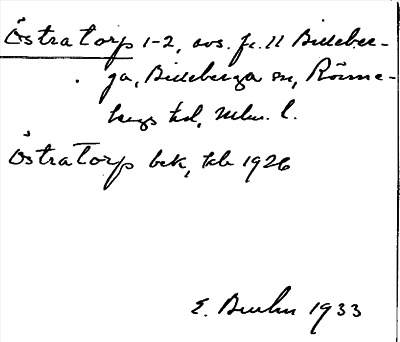 Östra Torp 1-2, avs. fr. 11 Billeber-
ga, Billeberga sn, Rönne-
bergs hd, Mlm. l.
Östra Torp bek, tel. 1926
E. 1933